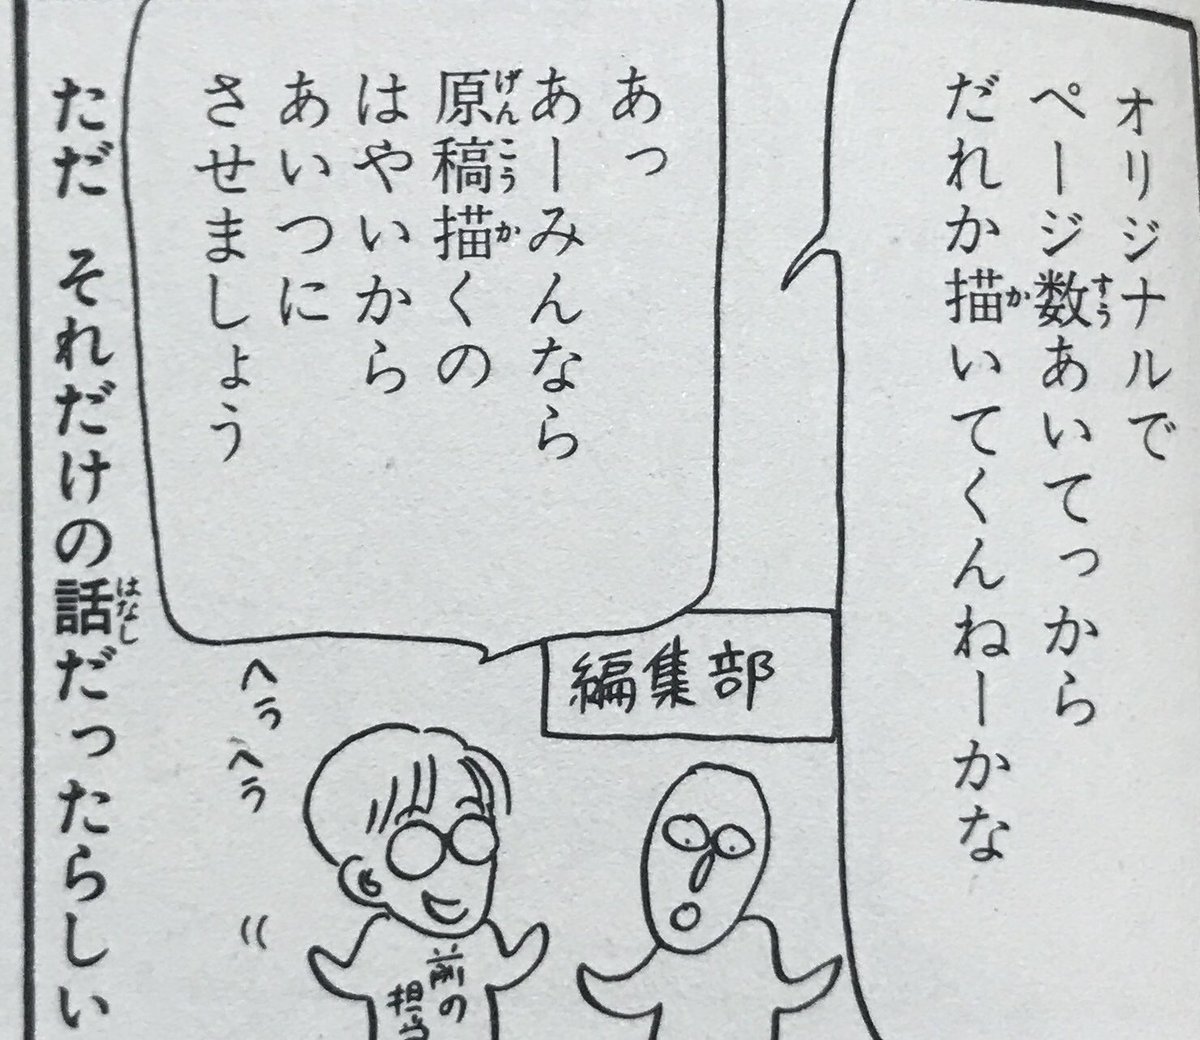 オリジナルで
ページ数あいてっから
だれか描いてくんねーかな
あっ
あーみんなら
原稿描くの
はやいから
あいつに
させましょう
編集部
ヘラ
ヘラ
前の
担当
ただ それだけの話だったらしい